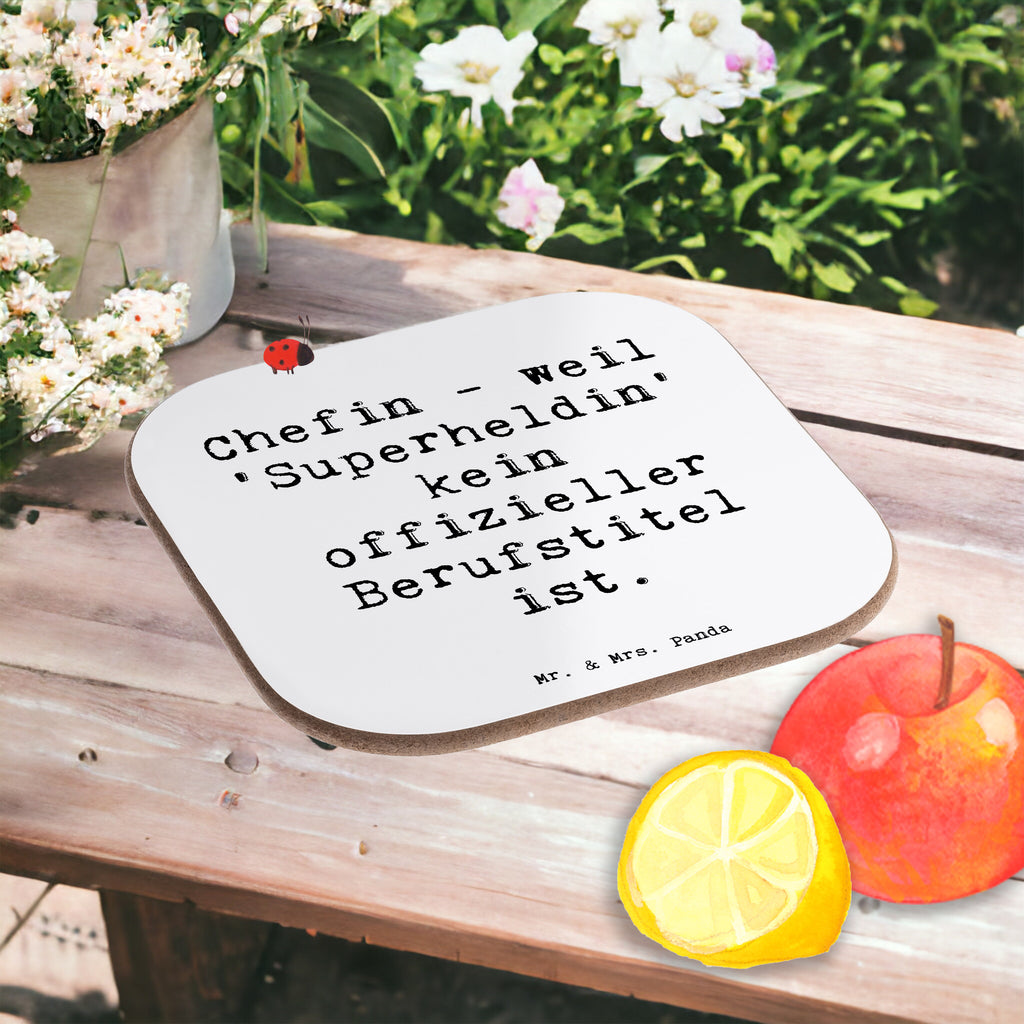 Chefin - Weil
'Superheldin'
kein
offizieller
Berufstitel
ist.
Mr. & Mrs. Panda